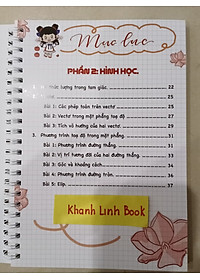 Mục lục
PHẦN 2: HÌNH HỌC.
thức lượng trong tam giác. 22
25
Bài 1: Các phép toán trên vectơ. 25
Bài 2: Vectơ trong mặt phẳng toạ độ 27
Bài 3: Tích vô hướng của hai vectơ. 29
3. Phương trình toạ độ trong mặt phẳng. 31
Bài 1: Phương trình đường thẳng. 31
Bài 2: Vị trí tương đối của hai đường thẳng. 31
Bài 3: Góc và khoảng cách. 33
Bài 4: Phương trình đường tròn. 35
Bài 5: Elip. 37
Khánh Linh Book